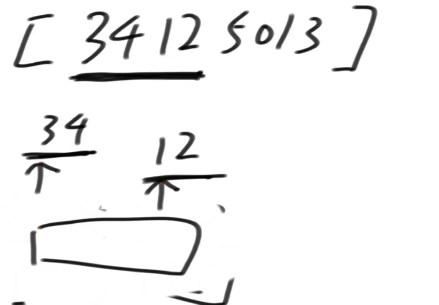 [ 3412 5013 ]
34 12